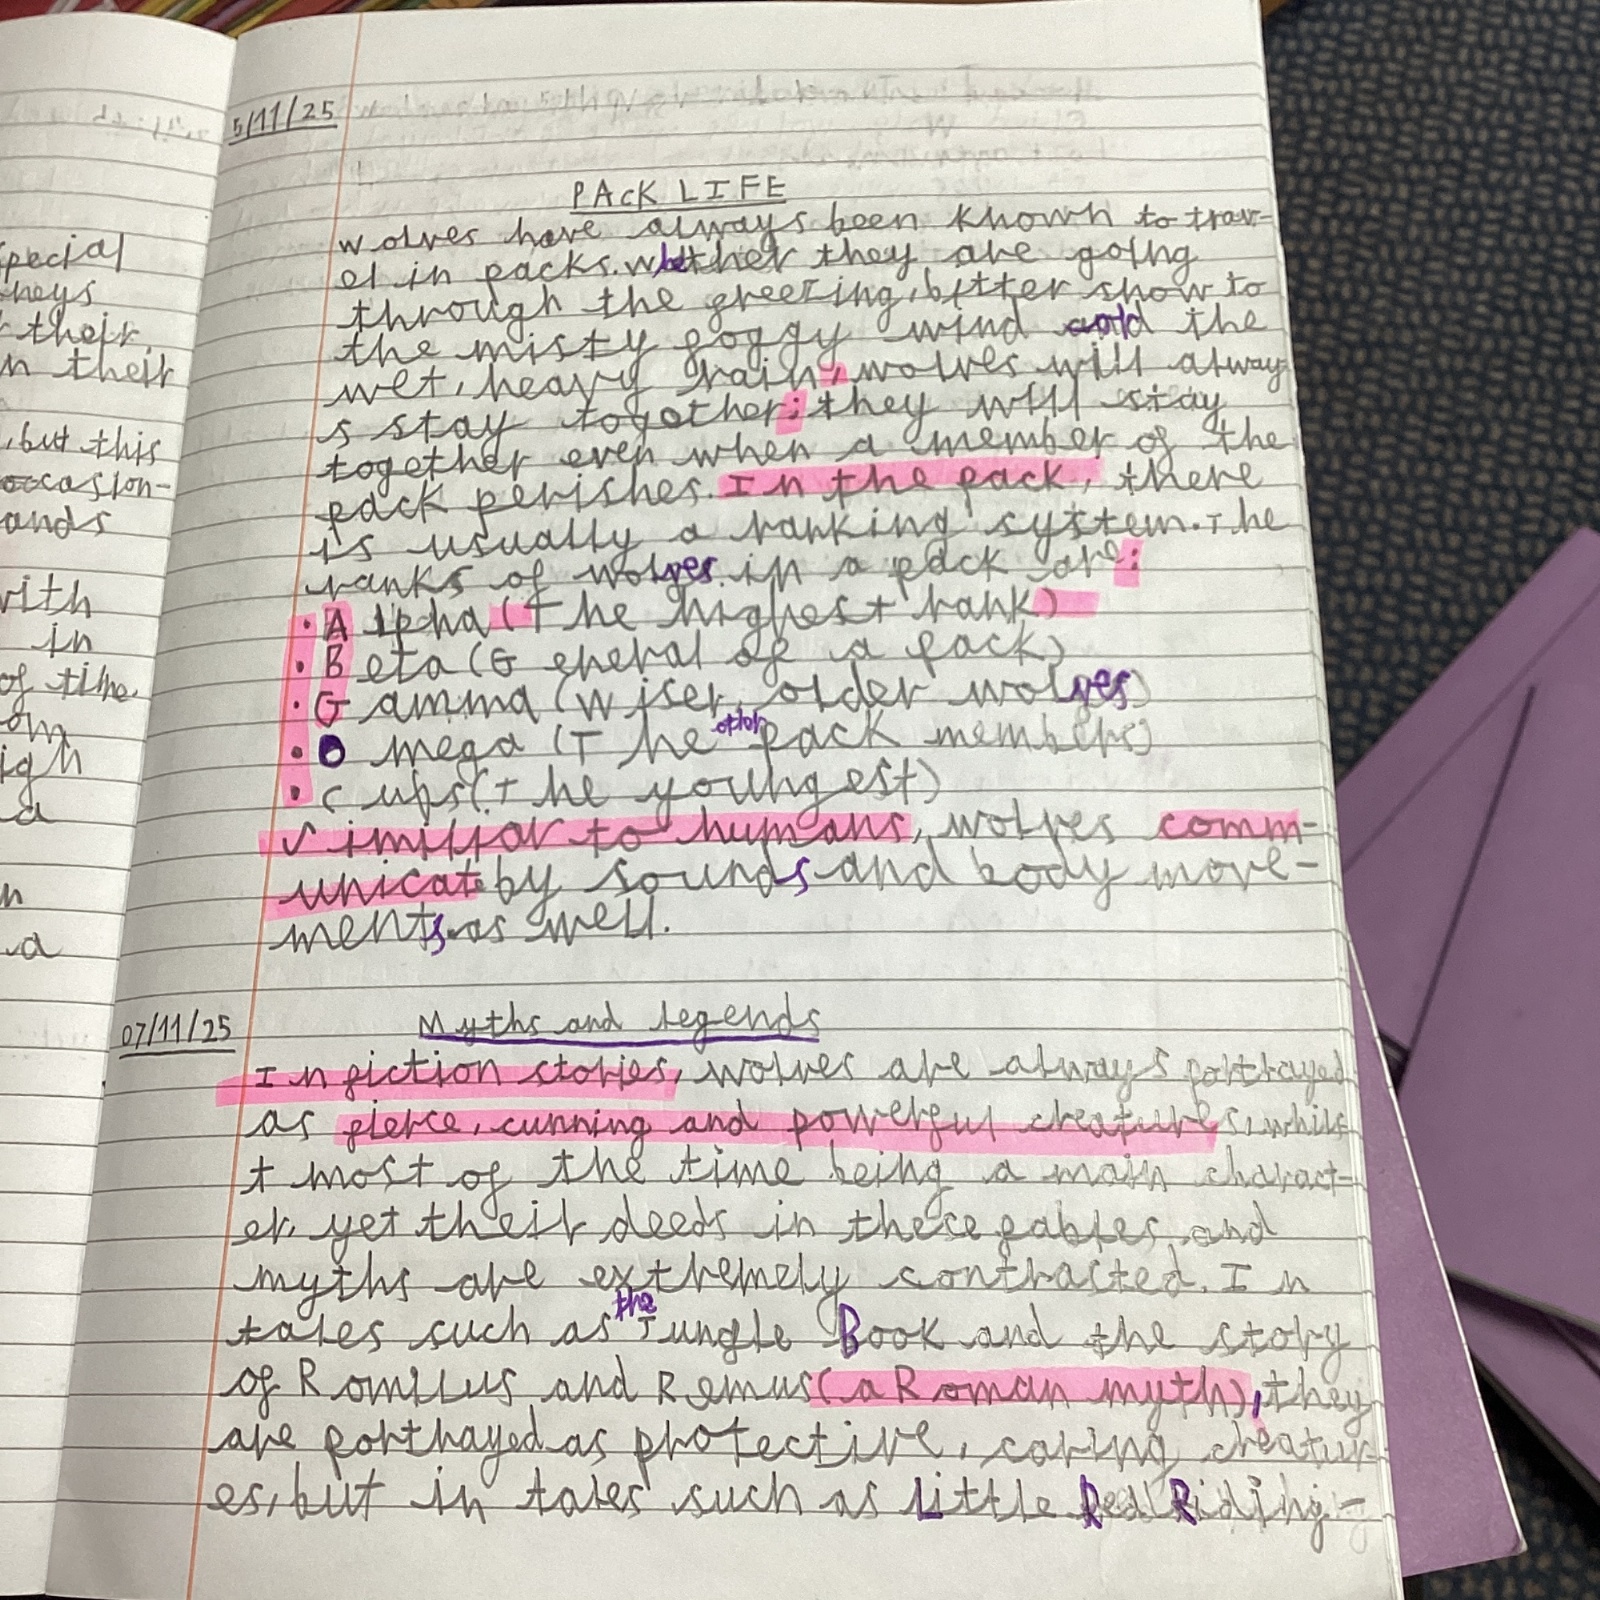 special
their
n their
, but this
occasion-
ands
with
in
of time.
om
igh
a
n
a
5/11/25
PACK LIFE
wolves have always been known to trav-
el in packs. whether they are going
through the freezing, bitter snow to
the misty foggy wind and the
wet, heavy rain, wolves will alway
s stay together; they will stay
together even when a member of the
pack perishes. In the pack, there
is usually a ranking system. The
ranks of wolves in a pack are:
• Alpha (The highest rank)
• Beta (General of a pack)
• Gamma (Wiser, older wolves)
• Omega (The other pack members)
• Cups (The youngest)
Similiar to humans, wolves comm-
unicate by sounds and body move-
ments as well.
07/11/25
Myths and legends
In fiction stories, wolves are always portrayed
as fierce, cunning and powerful creatures, whils
t most of the time being a main charact-
er, yet their deeds in these fables and
myths are extremely contrasted. In
tales such as the Jungle Book and the story
of Romulus and Remus (a Roman myth), they
are portrayed as protective, caring creatur-
es, but in tales such as Little Red Riding-